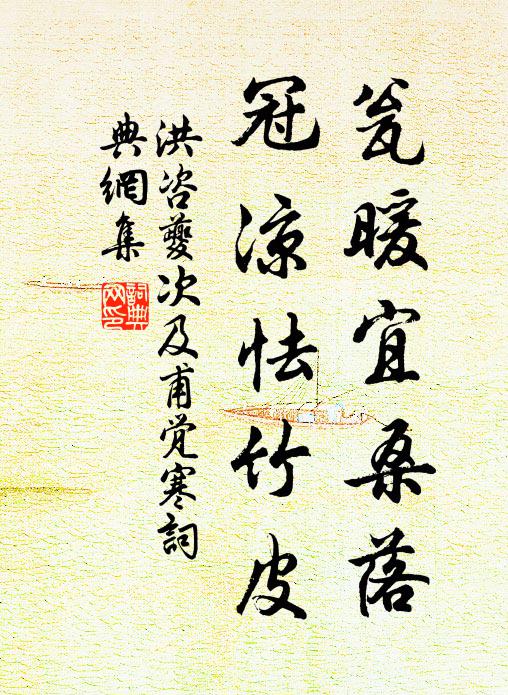 瓮暖宜桑落
冠凉怯竹皮
洪咨夔次及甫觉寒詞
典網集
詞典网印